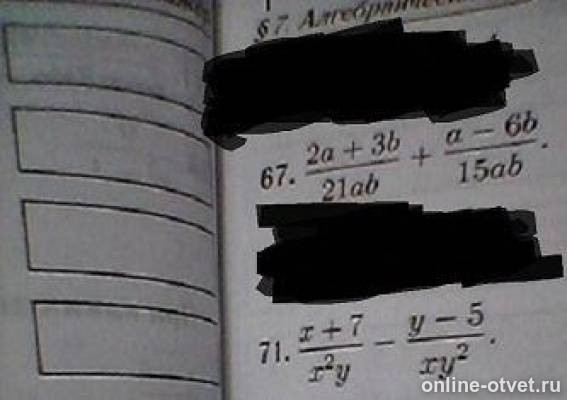 § 7. Алгебраические
67. \frac{2a + 3b}{21ab} + \frac{a - 6b}{15ab}.
71. \frac{x + 7}{x^2y} - \frac{y - 5}{xy^2}.
online-otvet.ru